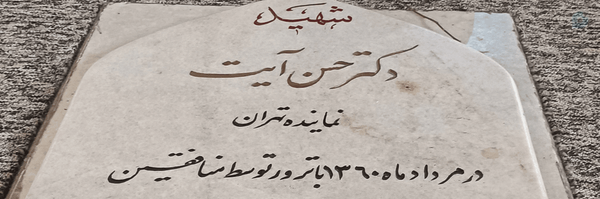 شهید
دکتر حسن آیت
نماینده تهران
در مرداد ماه ۱۳۶۰ با ترور توسط منافقین